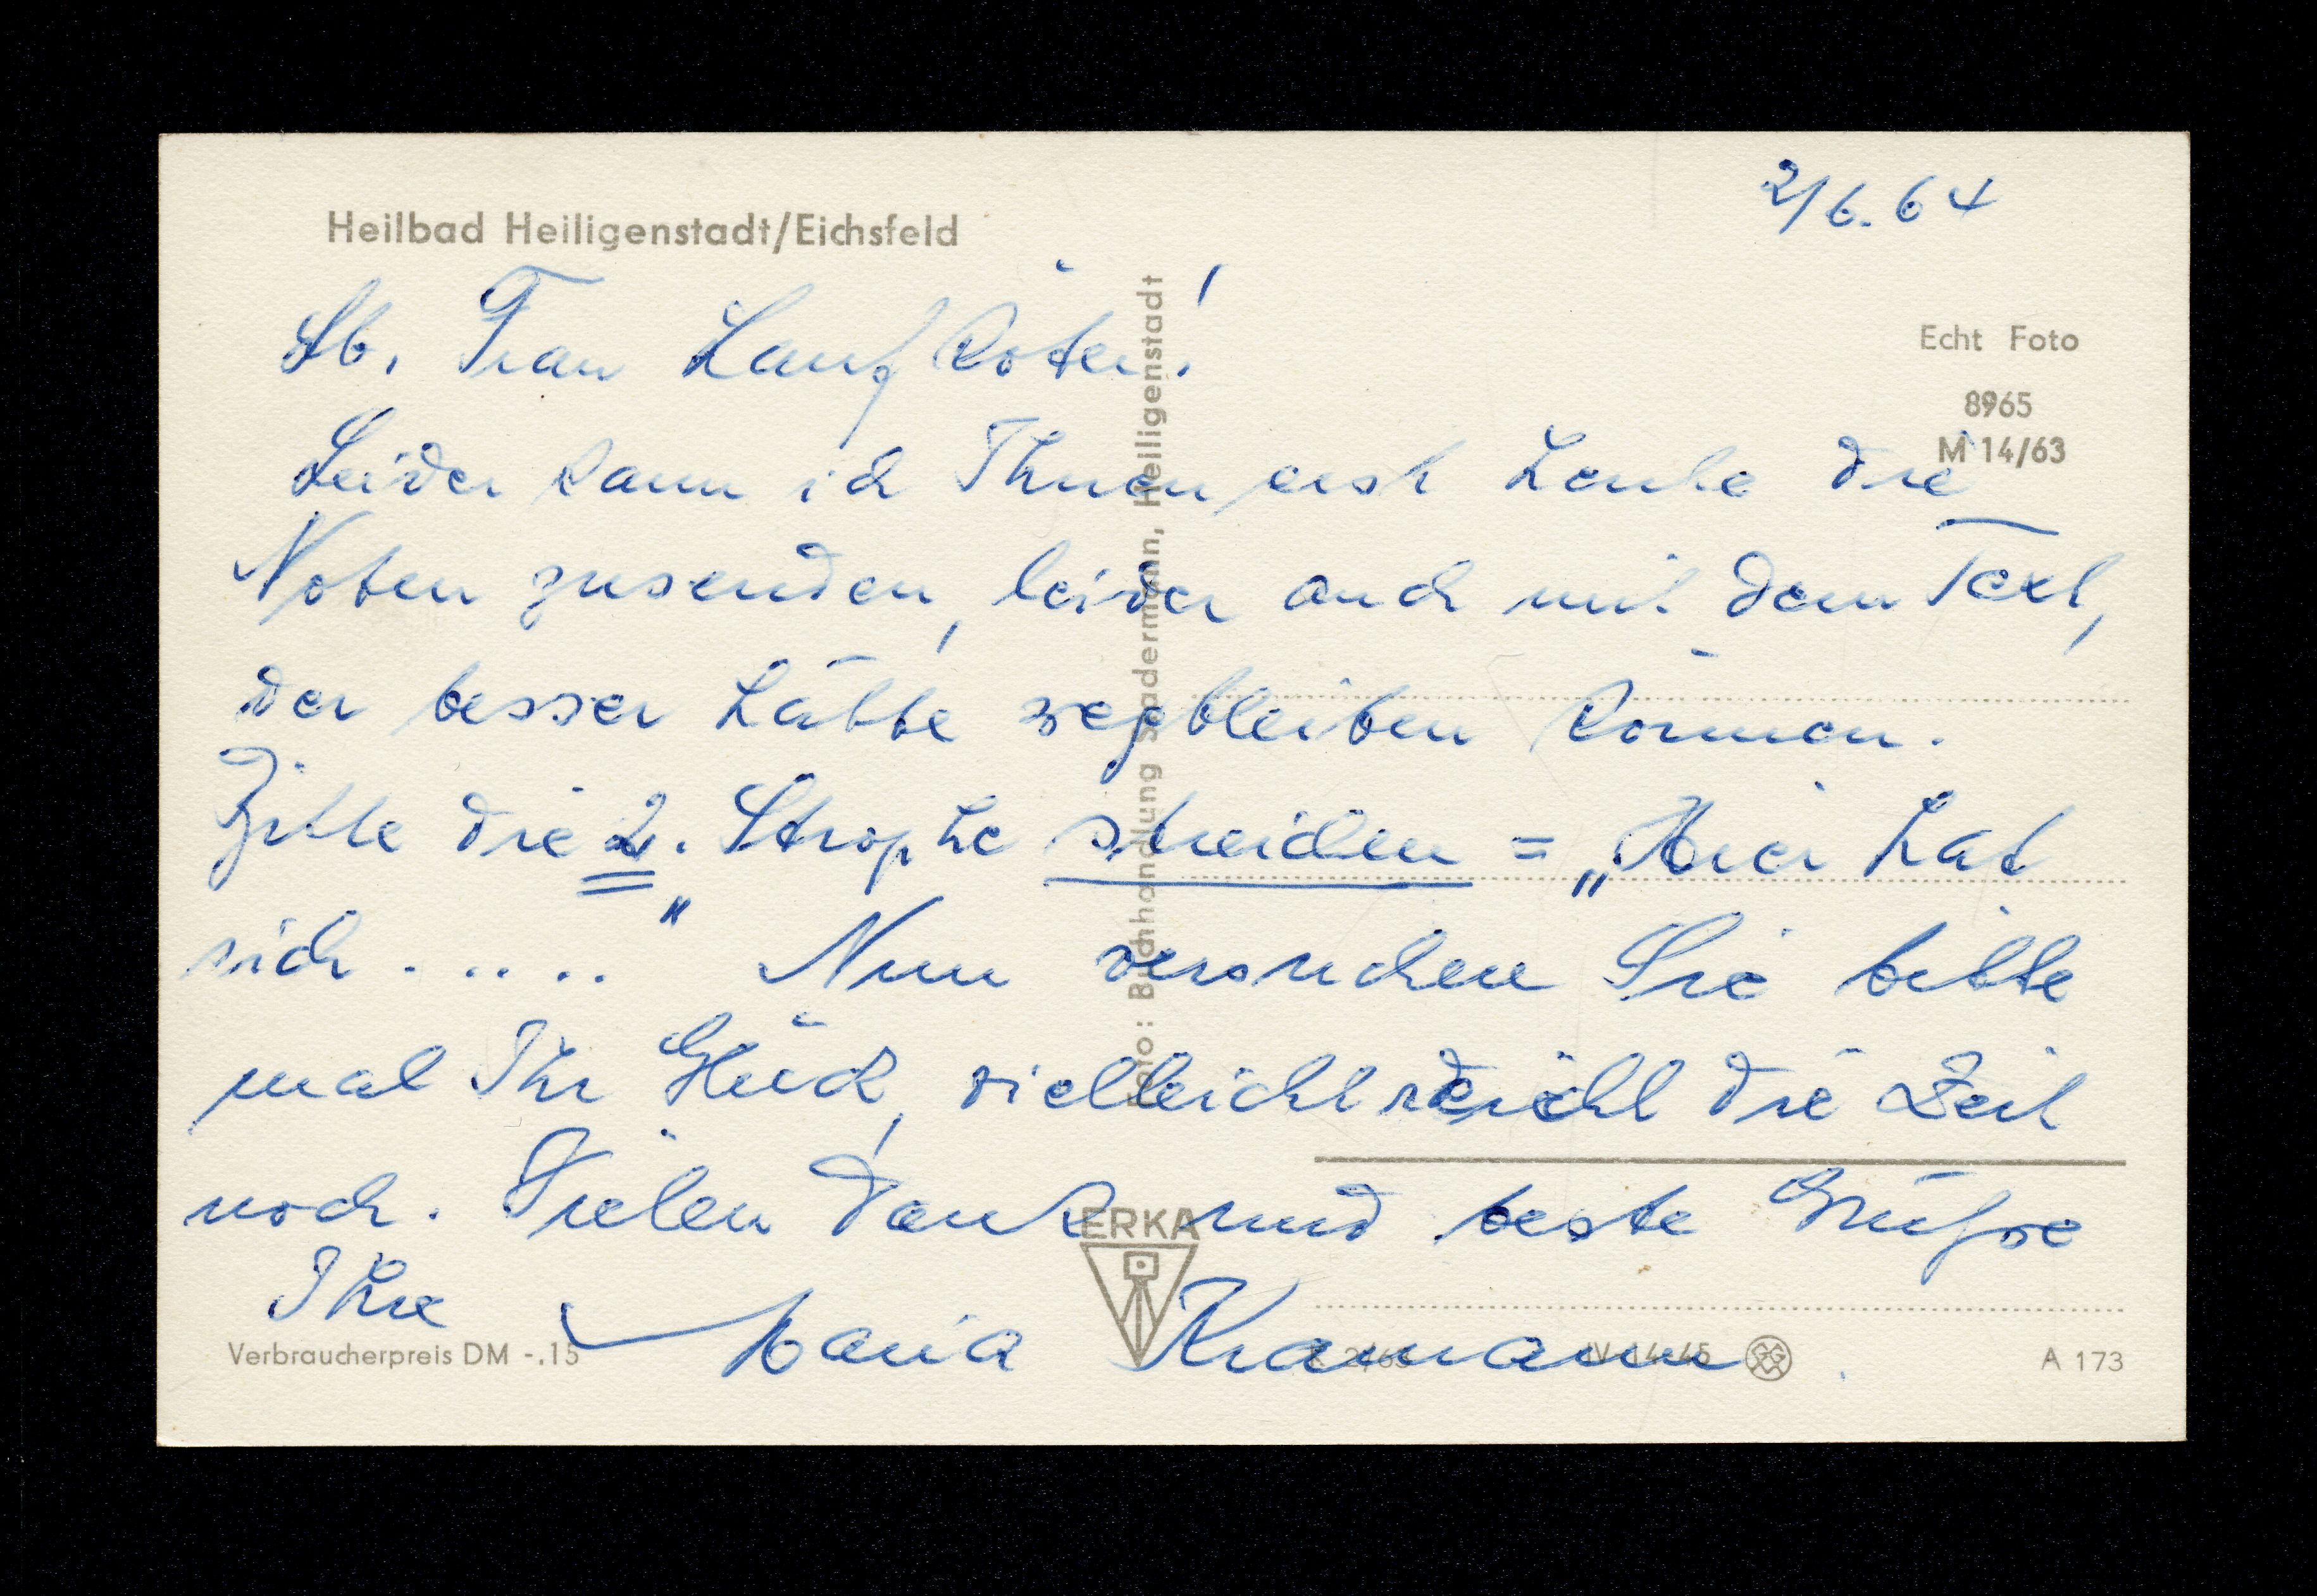 2/6.64
Heilbad Heiligenstadt/Eichsfeld
Lb. Frau Haufköter!
Echt Foto
8965
M 14/63
Leider kann ich Ihnen erst heute die
Noten zusenden, leider auch mit dem Text,
der besser hätte wegbleiben können.
Bitte die 2. Strophe streichen = „Hier hat
sich ....." Nun versuchen Sie bitte
mal Ihr Glück, vielleicht reicht die Zeit
noch. Vielen Dank und beste Grüße
Ihre Maria Kramann.
Foto: Buchhandlung Sadermann, Heiligenstadt
ERKA
Verbraucherpreis DM -.15
A 173